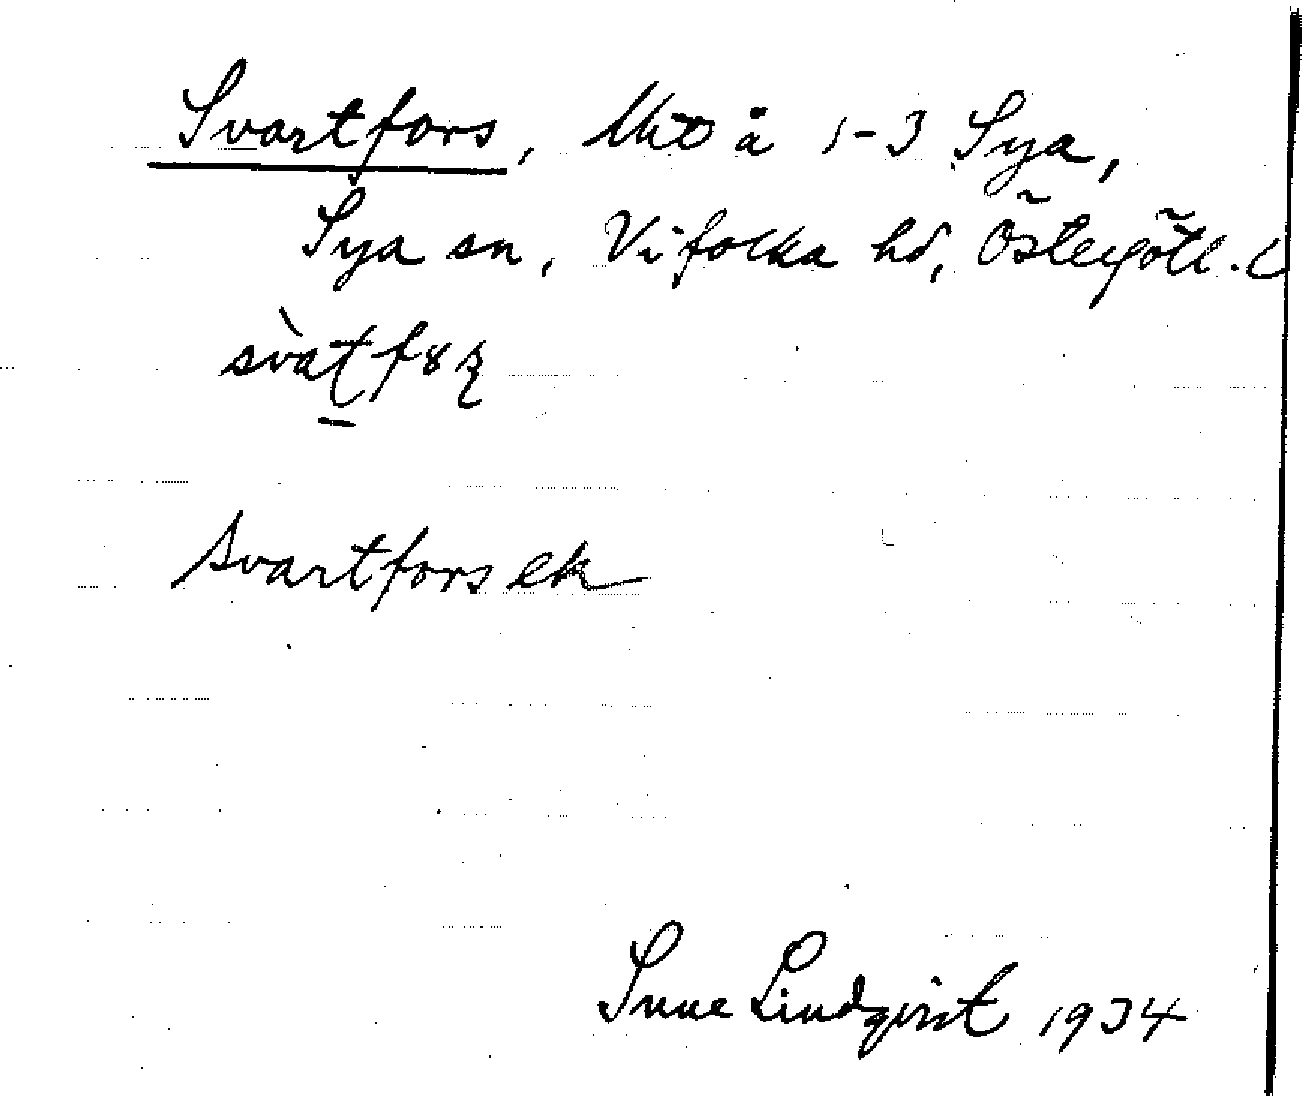 Svartfors, Utd å 1-3 Sya,
Sya sn, Vifolka hd, Östergötl. l
svat f
svartfors ek
Sune Lindqvist 1934